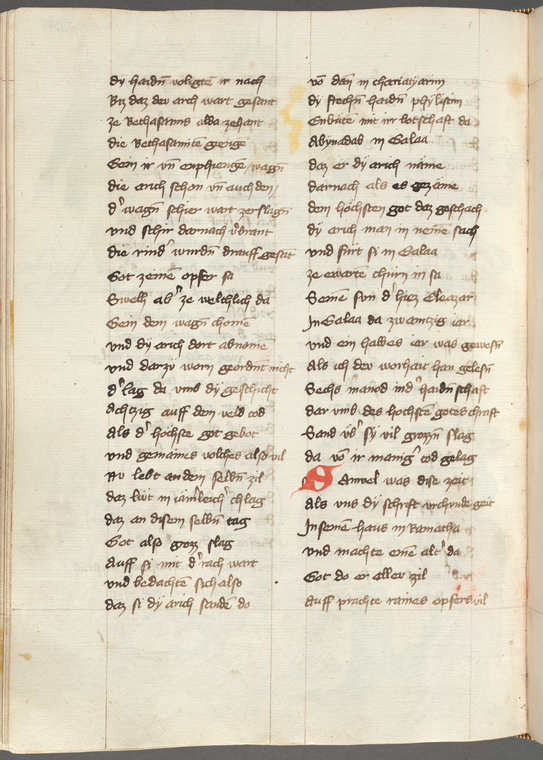 dy haidn̄ volgtē ir nach
Biz daz der arch wart gesant
ze Bethasamus alda zehant
die Bethasamitē gerige
Gein ir vn̄ enphienge wagn̄
die arich schon vn̄ auch den
d' wagn̄ schier wart zerslagn̄
und schir darnach v'brant
die rind' wurdn̄ drauff gesat
Got zeinē opfer sa
Swelh ab' ze welchlich da
Gein dem wagn̄ chome
und dy arich dort abname
und darzu worn geordnt nicht
d' lag da vmb dy geschicht
Achtzig auff dem veld tod
als d' hochste got gebot
und gemaines volches also vil
Nu lebt an dem selbn̄ zil
daz laut in iamleich' chlag
daz an disem selbn̄ tag
Got also grozz slag
Auff si mit d' rach wart
und bedachtē sich also
daz si dy arich sandē do
võ dan in chariatyarim
dy frechn̄ haidn̄ phylistin
Enbutē mit irr botschaft da
Abynadab in Galaa
daz er dy arich näme
darnach als es gezäme
dem höchsten got daz geschach
dy arich man in nemē sach
und furt si in Galaa
ze ewarte churn in sa
Seinē sun d' hiez Eleazar
In Galaa da zwaintzig iar
und ein halbes iar was gewesn̄
als ich der worhait han gelesn̄
Sechs manod ind' haidn̄schaft
dar vmb des hochste gotes chraft
Sand vb' sy vil grozzn̄ slag
da võ ir manig' tod gelag
Samuel was dise zeit
als vns dy schrift vrchunde geit
In seinem haus in Ramatha
und machte einē alt' da
Got do er aller zil
auff prachte raines opfers vil